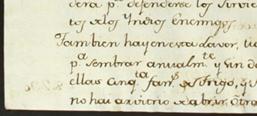 dera p.ª defenderse los Sirvie
tos de los Yndios Enemigos
Tambien hay en esta Lavor, tie
p.ª sembrar anualm.te y sin de
ellas cinq.ta fan.s de Trigo, y
no hai arvitrio de abrir Otra